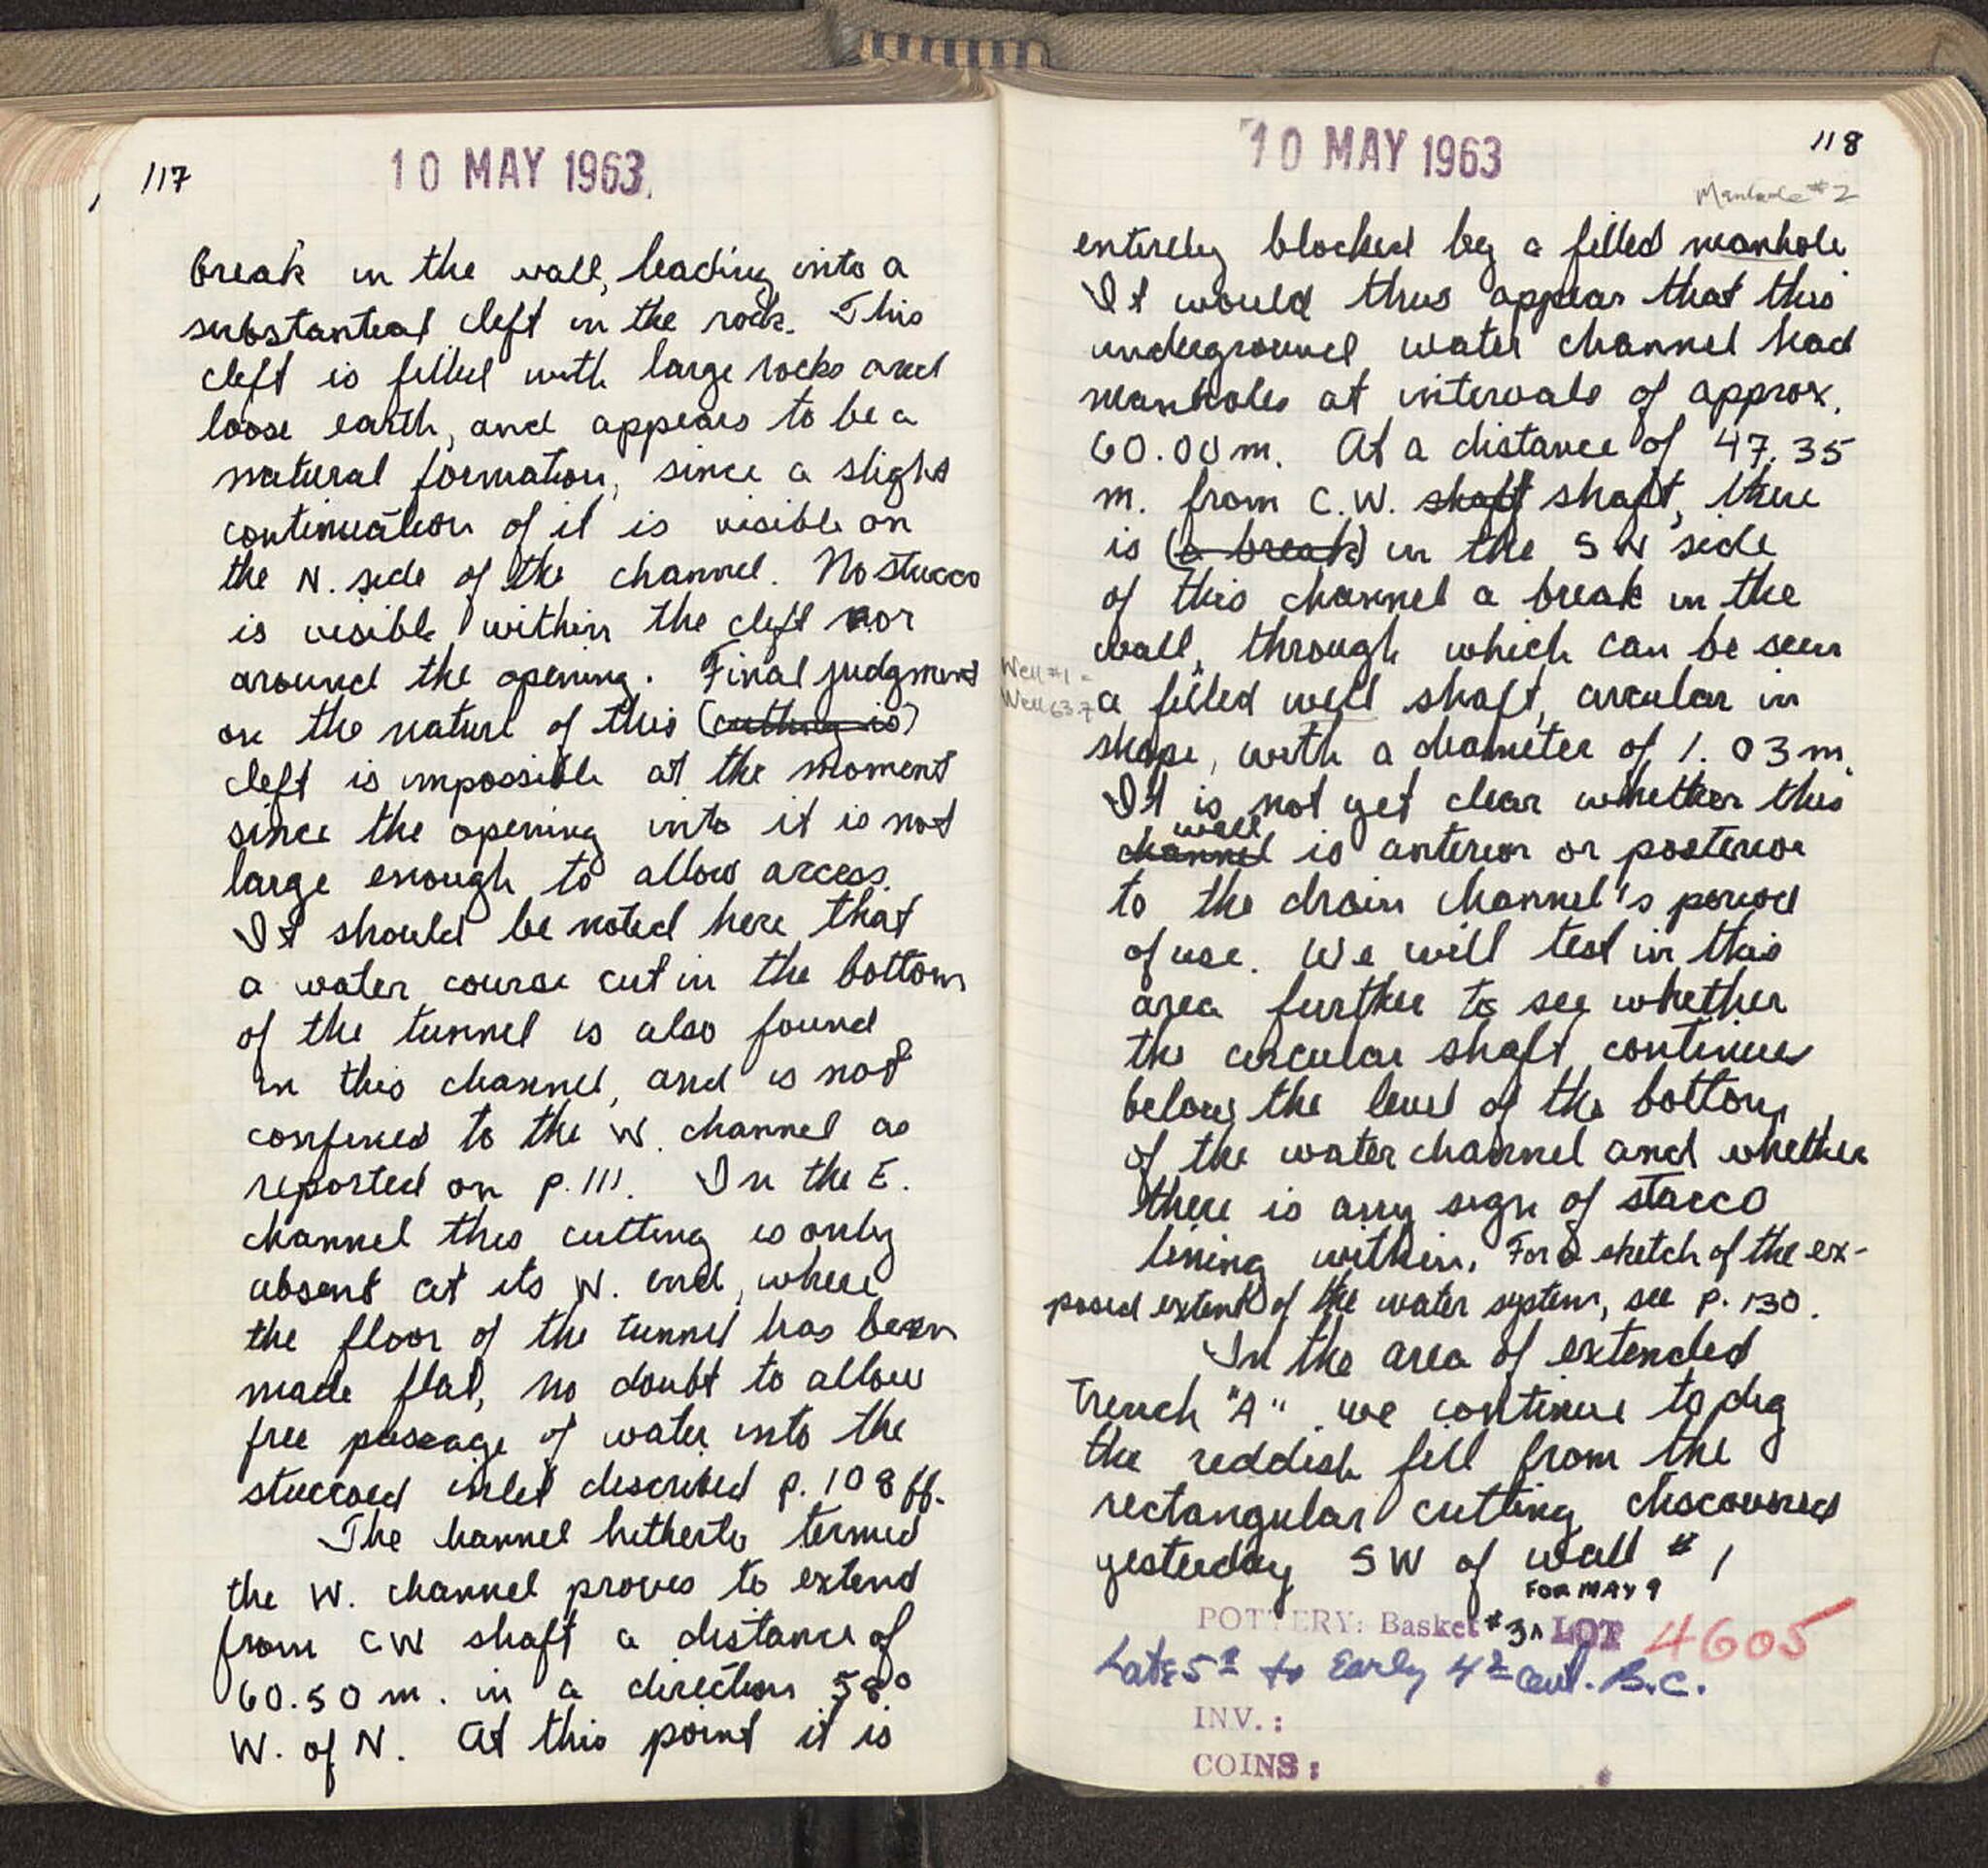 117
10 MAY 1963
break in the wall, leading into a
substantial cleft in the rock. This
cleft is filled with large rocks and
loose earth, and appears to be a
natural formation, since a slight
continuation of it is visible on
the N. side of the channel. No stucco
is visible within the cleft nor
around the opening. Final judgment
on the nature of this (cutting is)
cleft is impossible at the moment
since the opening into it is not
large enough to allow access.
It should be noted here that
a water course cut in the bottom
of the tunnel is also found
in this channel, and is not
confined to the W. channel as
reported on p. 111. In the E.
channel this cutting is only
absent at its W. end, where
the floor of the tunnel has been
made flat, no doubt to allow
free passage of water into the
stuccoed inlet described p. 108 ff.
The hannel hitherto termed
the W. channel proves to extend
from CW shaft a distance of
60.50 m. in a direction 58°
W. of N. At this point it is
10 MAY 1963
118
Manhole #2
entirely blocked by a filled manhole.
It would thus appear that this
underground water channel had
manholes at intervals of approx.
60.00 m. At a distance of 47.35
m. from C.W. shaft shaft, there
is (a break) in the SW side
of this channel a break in the
wall, through which can be seen
Well #1 =
Well 63-7
a filled well shaft, circular in
shape, with a diameter of 1.03 m.
It is not yet clear whether this
well
channel is anterior or posterior
to the drain channel's period
of use. We will test in this
area further to see whether
the circular shaft continues
below the level of the bottom
of the water channel and whether
there is any sign of stucco
lining within. For a sketch of the ex-
posed extent of the water system, see p. 130.
In the area of extended
Trench "A" we continue to dig
the reddish fill from the
rectangular cutting discovered
yesterday SW of wall # 1
FOR MAY 9
POTTERY: Basket #3^ LOT 4605
Late 5th to Early 4th cent. B.C.
INV.:
COINS: